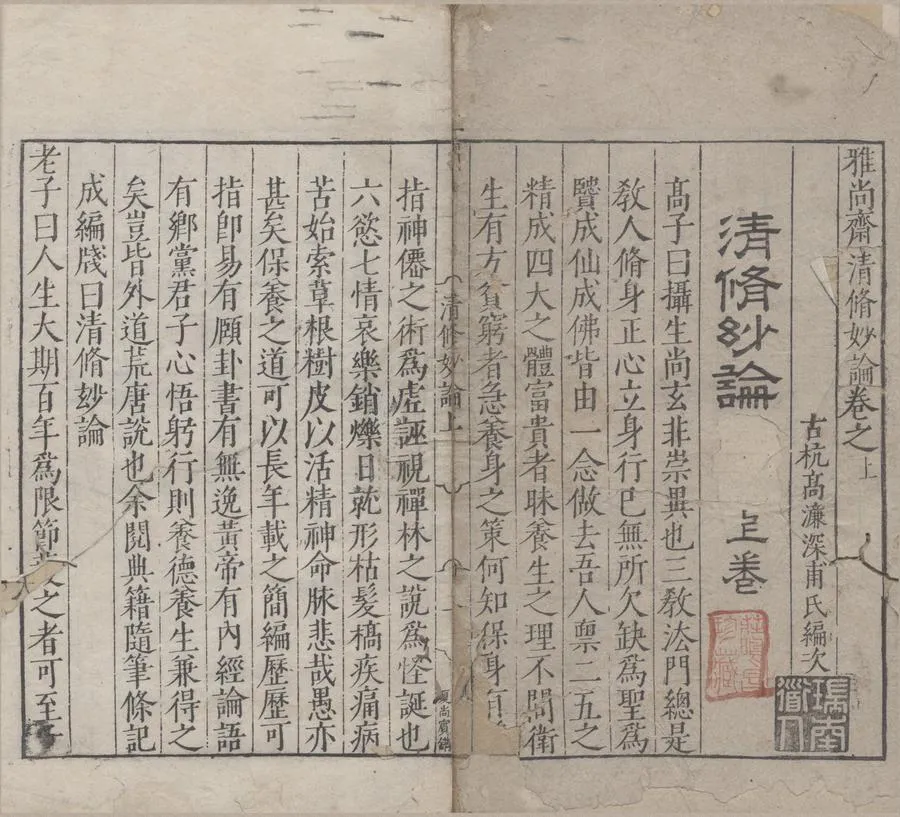 雅尚齋清脩妙論卷之上
古杭高濂深甫氏編次
瑞南道人
清脩玅論
上卷
高子曰攝生尚玄非崇異也三教法門總是
教人脩身正心立身行已無所欠缺爲聖爲
賢成仙成佛皆由一念做去吾人禀二五之
精成四大之體富貴者昧養生之理不問衛
生有方貧窮者急養身之策何知保身有
清脩妙論上
夏尚賓鐫
指神僊之術爲虛誣視禪林之說爲怪誕也
六慾七情哀樂銷爍日就形枯髮槁疾痛病
苦始索草根樹皮以活精神命脉悲哉愚亦
甚矣保養之道可以長年載之簡編歷歷可
指卽易有頤卦書有無逸黃帝有內經論語
有鄉黨君子心悟躬行則養德養生兼得之
矣豈皆外道荒唐說也余閱典籍隨筆條記
成編牋曰清脩玅論
老子曰人生大期百年爲限節護之者可至千